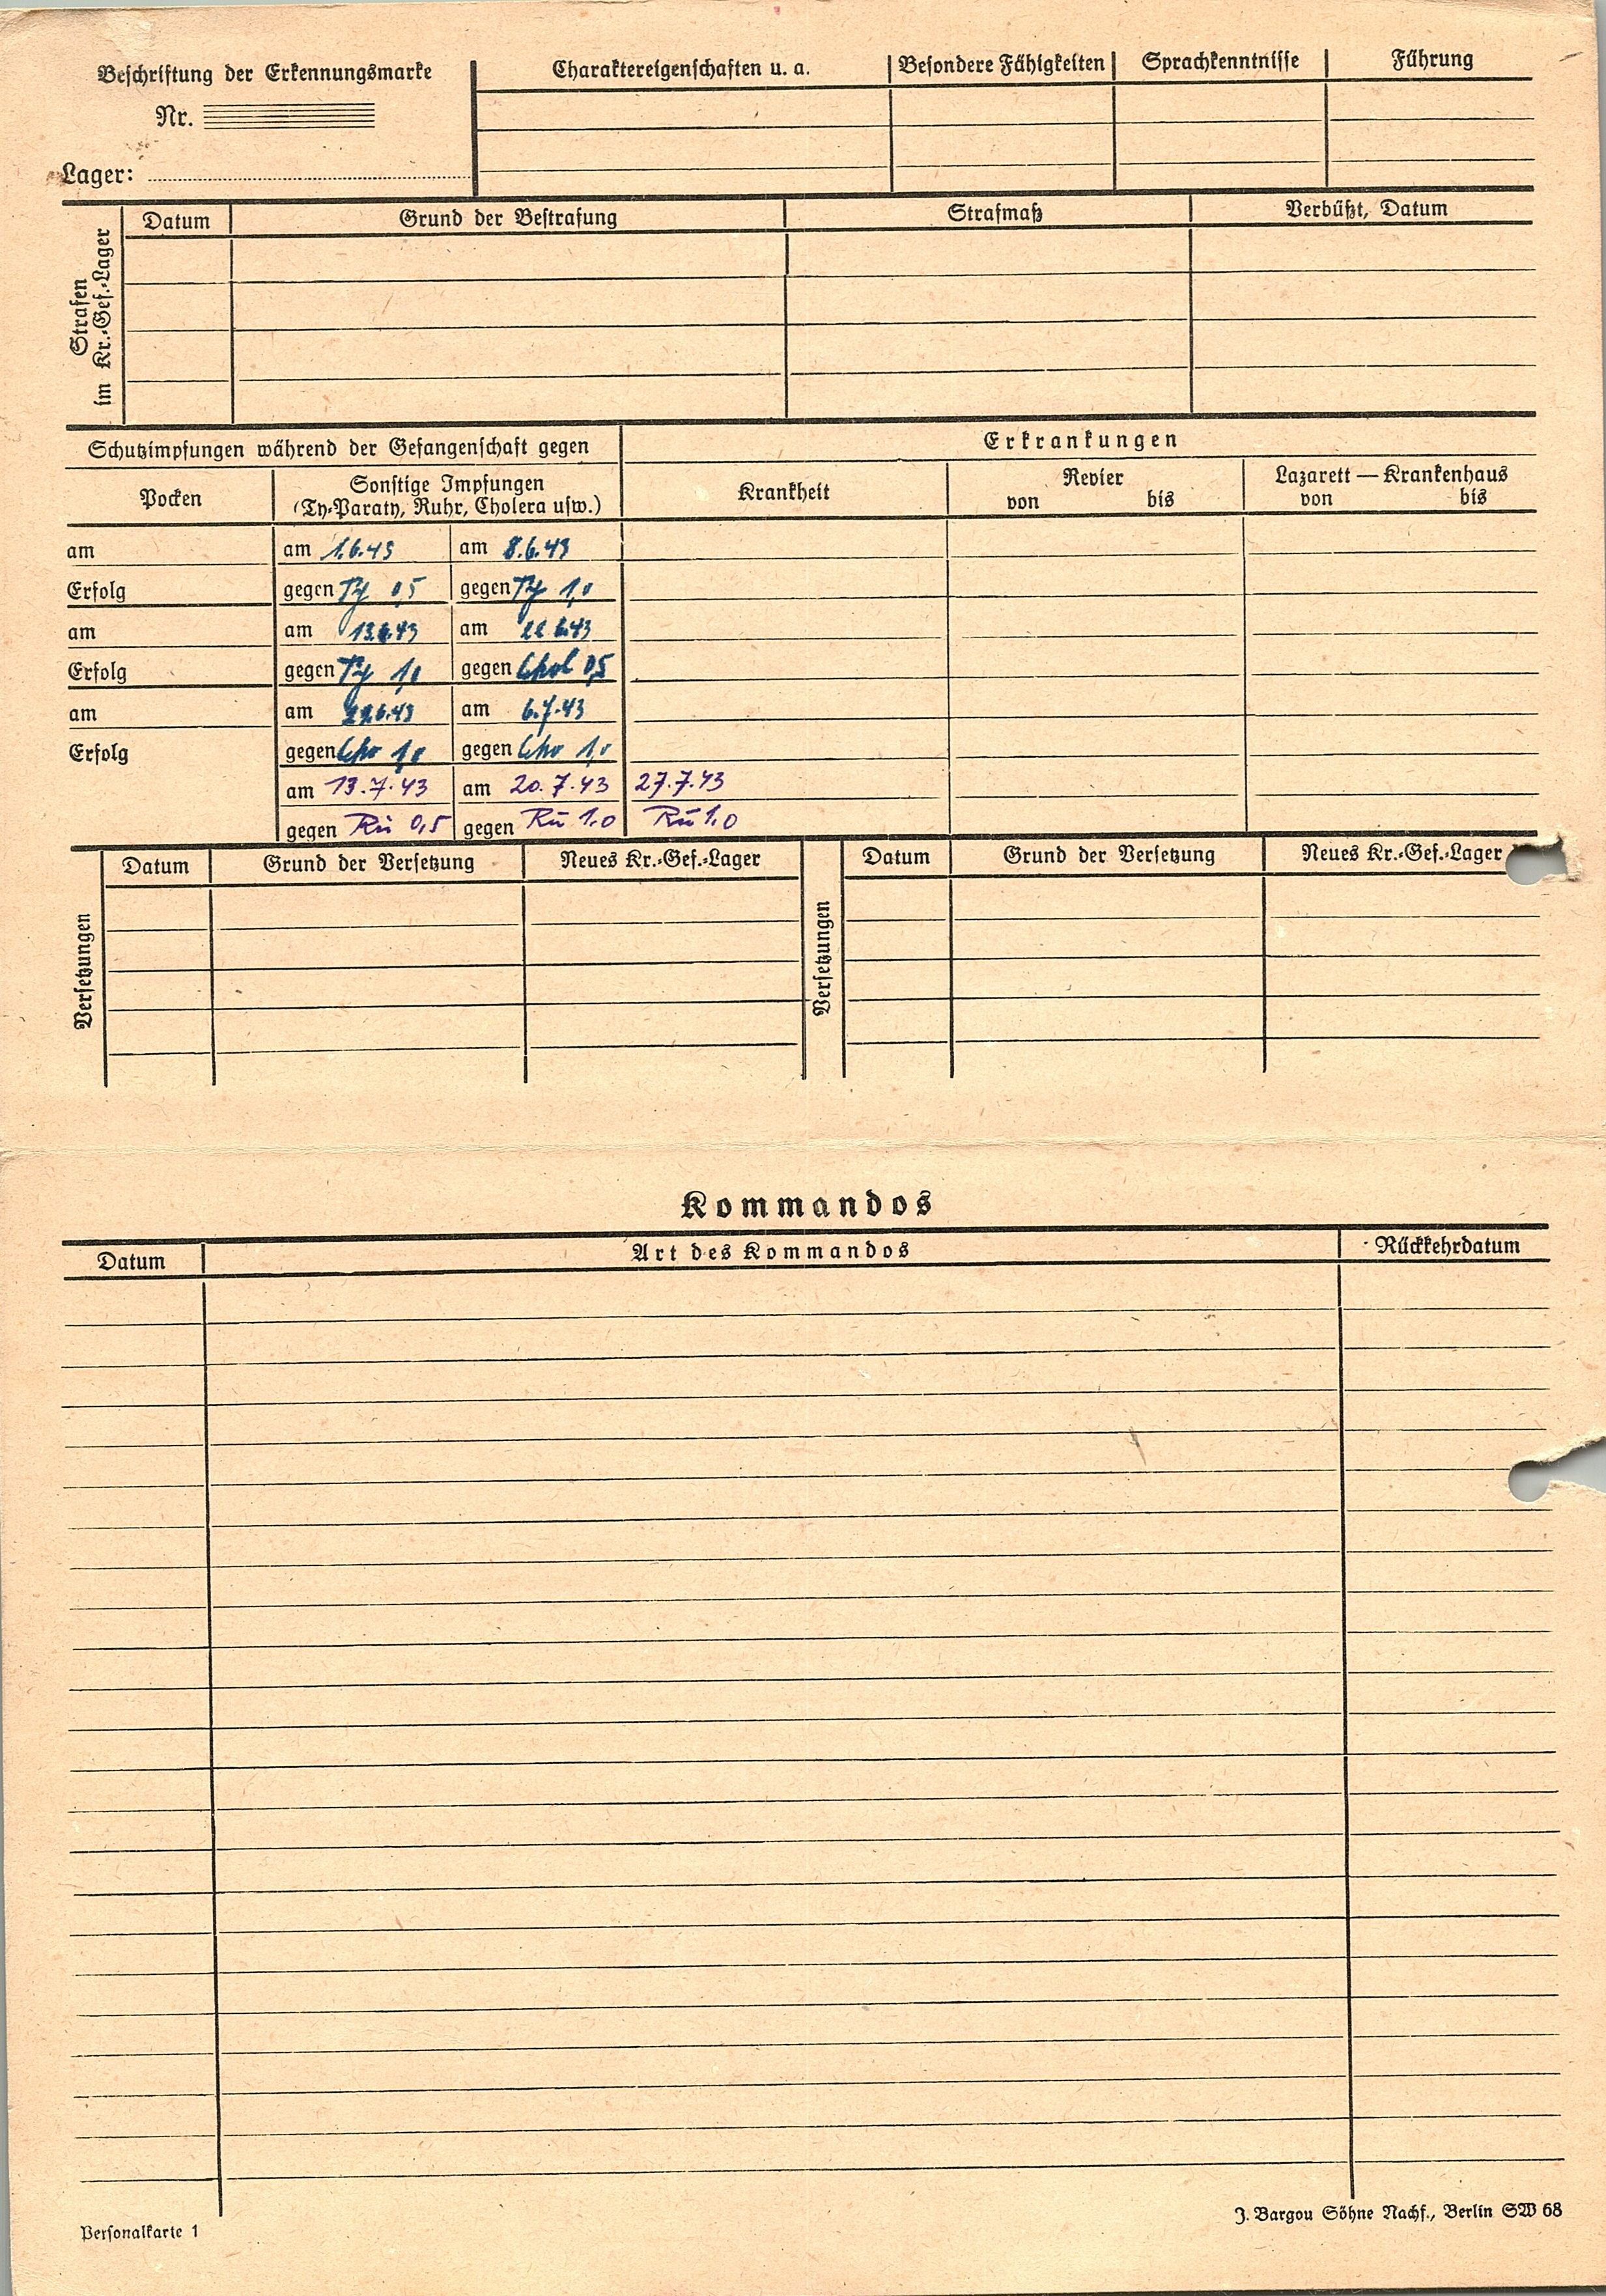 Beschriftung der Erkennungsmarke
Nr.
Lager:
Charaktereigenschaften u. a. Besondere Fähigkeiten Sprachkenntnisse Führung
Strafen
im Kr.-Gef.-Lager
Datum Grund der Bestrafung Strafmaß Verbüßt, Datum
Schutzimpfungen während der Gefangenschaft gegen
Erkrankungen
Pocken
Sonstige Impfungen
(Ty-Paraty, Ruhr, Cholera usw.)
Krankheit
Revier
von bis
Lazarett — Krankenhaus
von bis
am am 1.6.43 am 8.6.43
Erfolg gegen Ty 0,5 gegen Ty 1,0
am am 13.6.43 am 22.6.43
Erfolg gegen Ty 1,0 gegen Chol 0,5
am am 29.6.43 am 6.7.43
Erfolg gegen Cho 1,0 gegen Cho 1,0
am 13.7.43 am 20.7.43 27.7.43
gegen Ru 0,5 gegen Ru 1.0 Ru 1.0
Versetzungen
Datum Grund der Versetzung Neues Kr.-Gef.-Lager
Versetzungen
Datum Grund der Versetzung Neues Kr.-Gef.-Lager
Kommandos
Datum Art des Kommandos Rückkehrdatum
Personalkarte 1
J. Bargou Söhne Nachf., Berlin SW 68